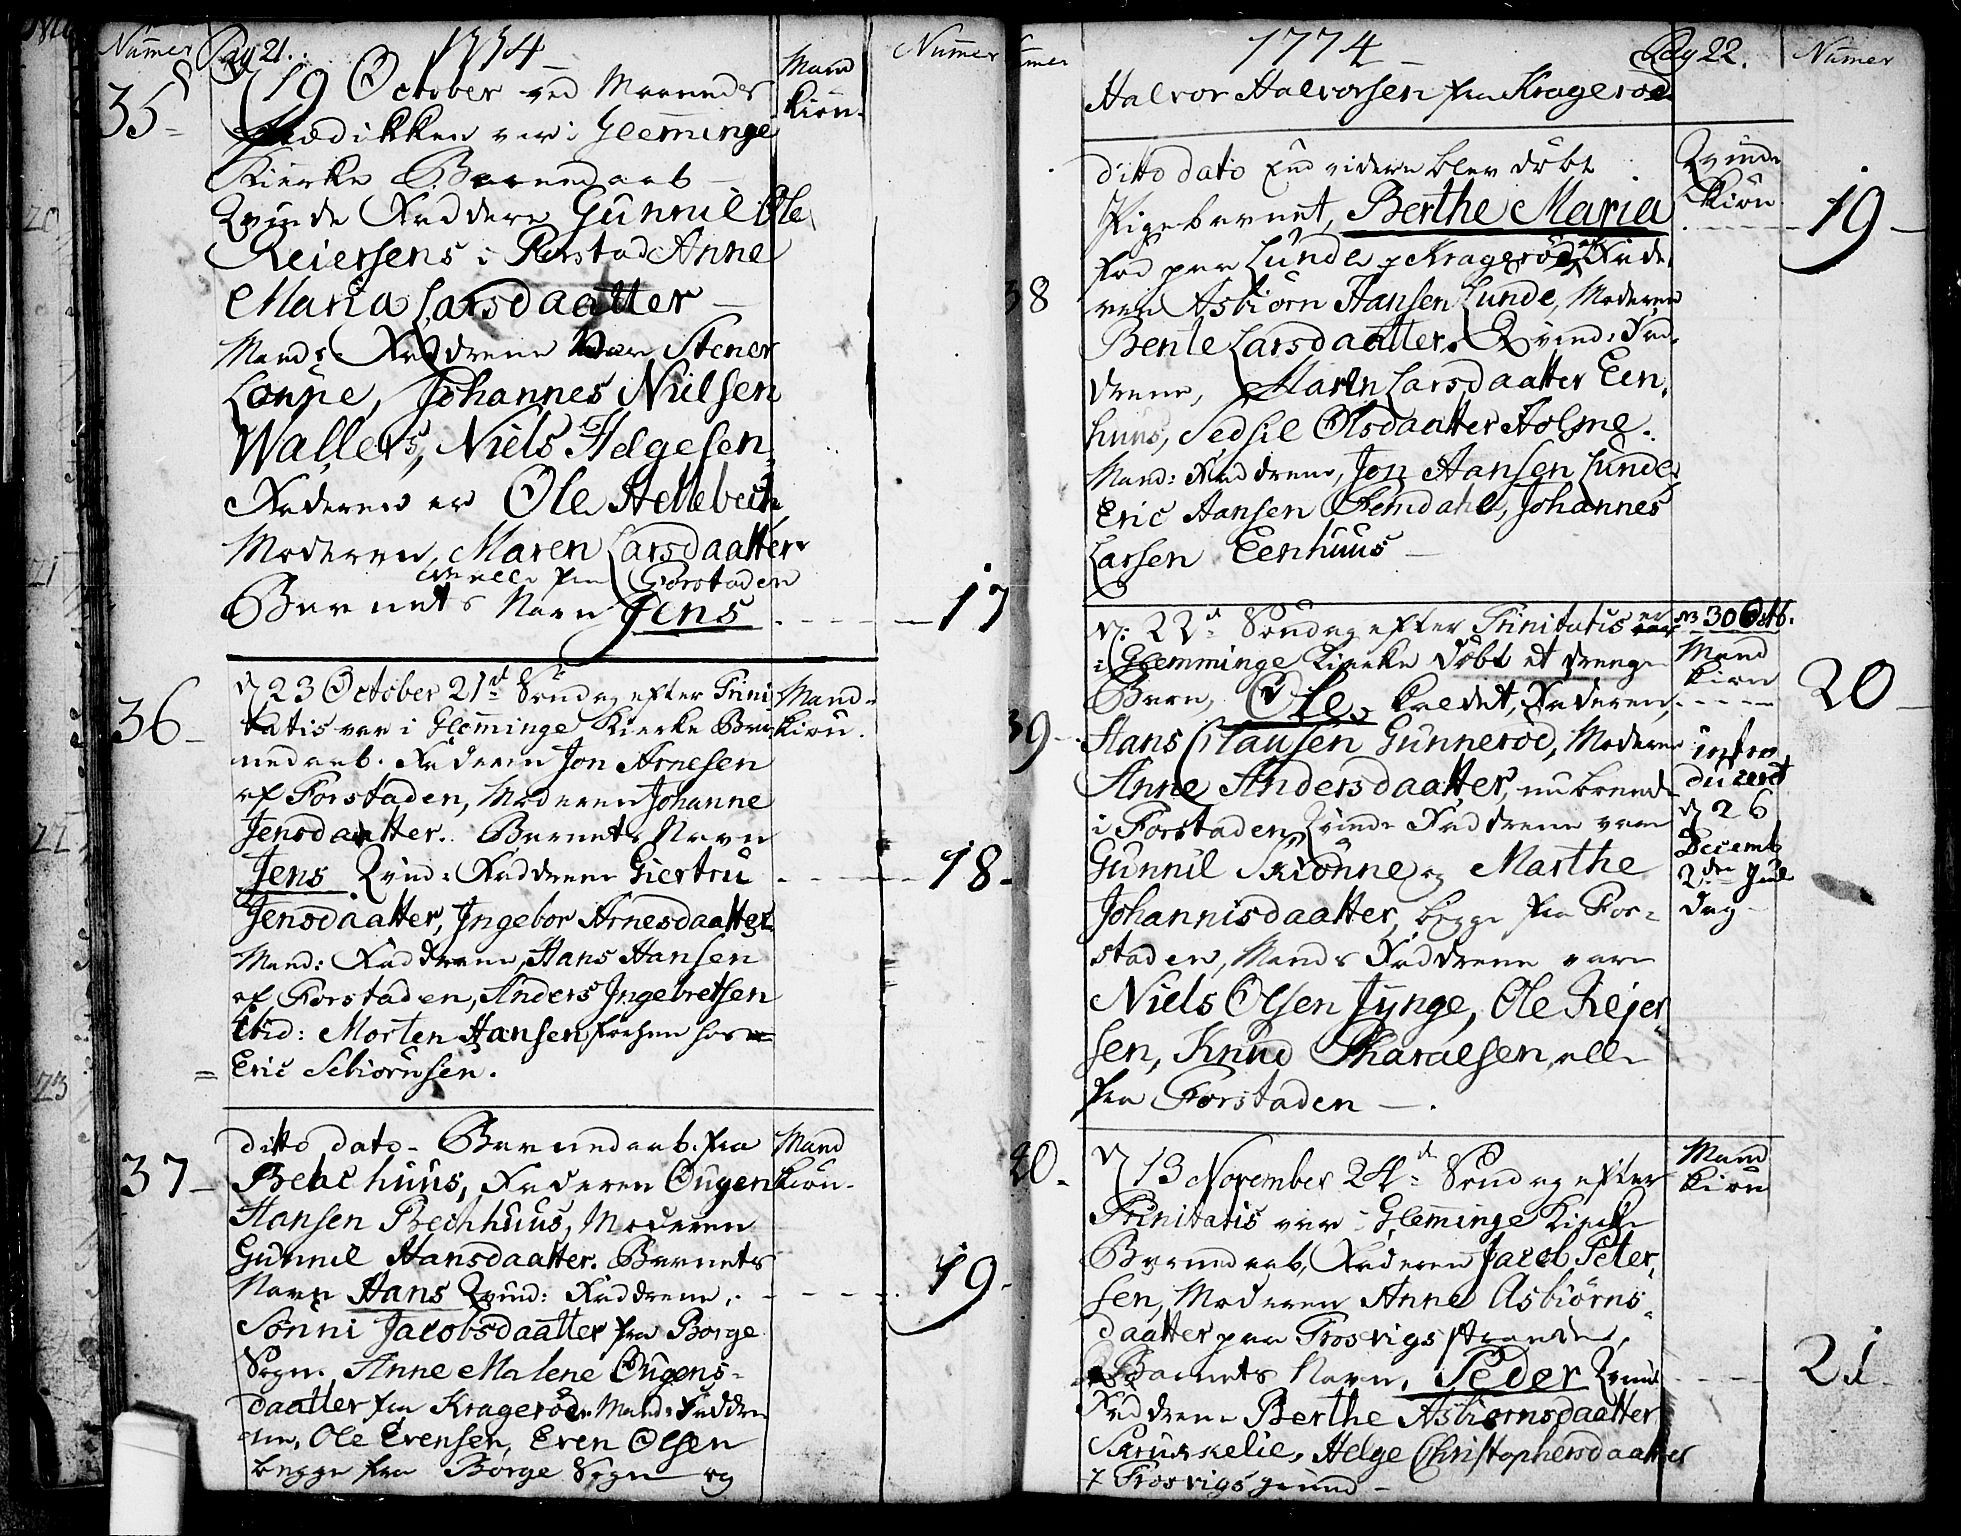 Numer Pag 21. 1774 Numer
35 19 October ved Maaneds Mand
Prædikken var i Glemminge kiøn.
Kierke Barnedaab
Qvinde Faddere Gunnil Ole
Reiersens i Forstad Anne
Maria Larsdaatter
Mands Fadderne var Stener
Johannes Nielsen
Wallers, Niels Helgesen,
Faderen er Ole Hellebech
Moderen, Maren Larsdaatter
fra Forstaden
Barnets Navn Jens 17
36 d 23 October 21d Søndag efter Trini Mand
tatis var i Glemminge Kierke Bar kiøn.
nedaab. Faderen Jon Arnesen
af Forstaden, Moderen Johanne
Jensdaatter. Barnets Navn
Jens Qvind: Fadderne Giertru 18
Jensdaatter, Ingebor Arnesdaatter
Mand: Fadderne, Hans Hansen
af Forstaden, Anders Ingebretsen
ibid: Morten Hansen hos
Eric
37 ditto dato - Barnedaab. fra Mand
huus, Faderen Ougen kiøn.
Hansen Bechhuus, Moderen
Gunnil Hansdaatter. Barnets
Navn Hans Qvind: Fadderne, 19
Sønni Jacobsdaatter fra Borge
Sogn. Anne Malene Ougens-
daatter fra Kragerød. Mand: Fadder
ne, Ole Evensen, Even Olsen
begge fra Borge Sogn og
1774 Pag 22. Numer
Halvor Halvorsen fra Kragerød
ditto dato videre blev døbt Qvinde
Pigebarnet, Berthe Maria kiøn 19
fød paa Lunde Kragerød Fade
38 ren Asbiørn Hansen Lunde, Moderen
Bente Larsdaatter. Qvind: Fad-
derne, Maren Larsdaatter Een-
huus, Sedsil Olsdaatter Holme.
Mand: Fadderne, Jon Hansen Lunde,
Eric Hansen Remdahl, Johannes
Larsen Eenhuus
d: 22d Søndag efter Trinitatis 30 Octb.
i Glemminge Kierke døbt et drenge Mand
Barn, Ole kaldet, Faderen, kiøn 20
39 Hans Clausen Gunnerød, Moderen intro
Anne Andersdaatter, nuboende duceret
i Forstaden Qvinde Fadderne vare d 26
Gunnil Skiønne og Marthe Decemb
Johannisdaatter, begge fra For- 2den Juul
staden, Mands Fadderne vare dag
Niels Olsen Tynge, Ole Rejer
sen, Knud Tharalsen, alle
fra Forstaden
d 13 November 24d Søndag efter Mand
Trinitatis var i Glemminge Kierke kiøn
Barnedaab, Faderen Jacob Peter-
sen, Moderen Anne Asbiørns-
daatter paa Trosvigs stranden,
Barnets Navn, Peder Qvind 21
Fadderne Berthe Asbiørnsdaatter
Helge Christophersdaatter
Trosvigs grund